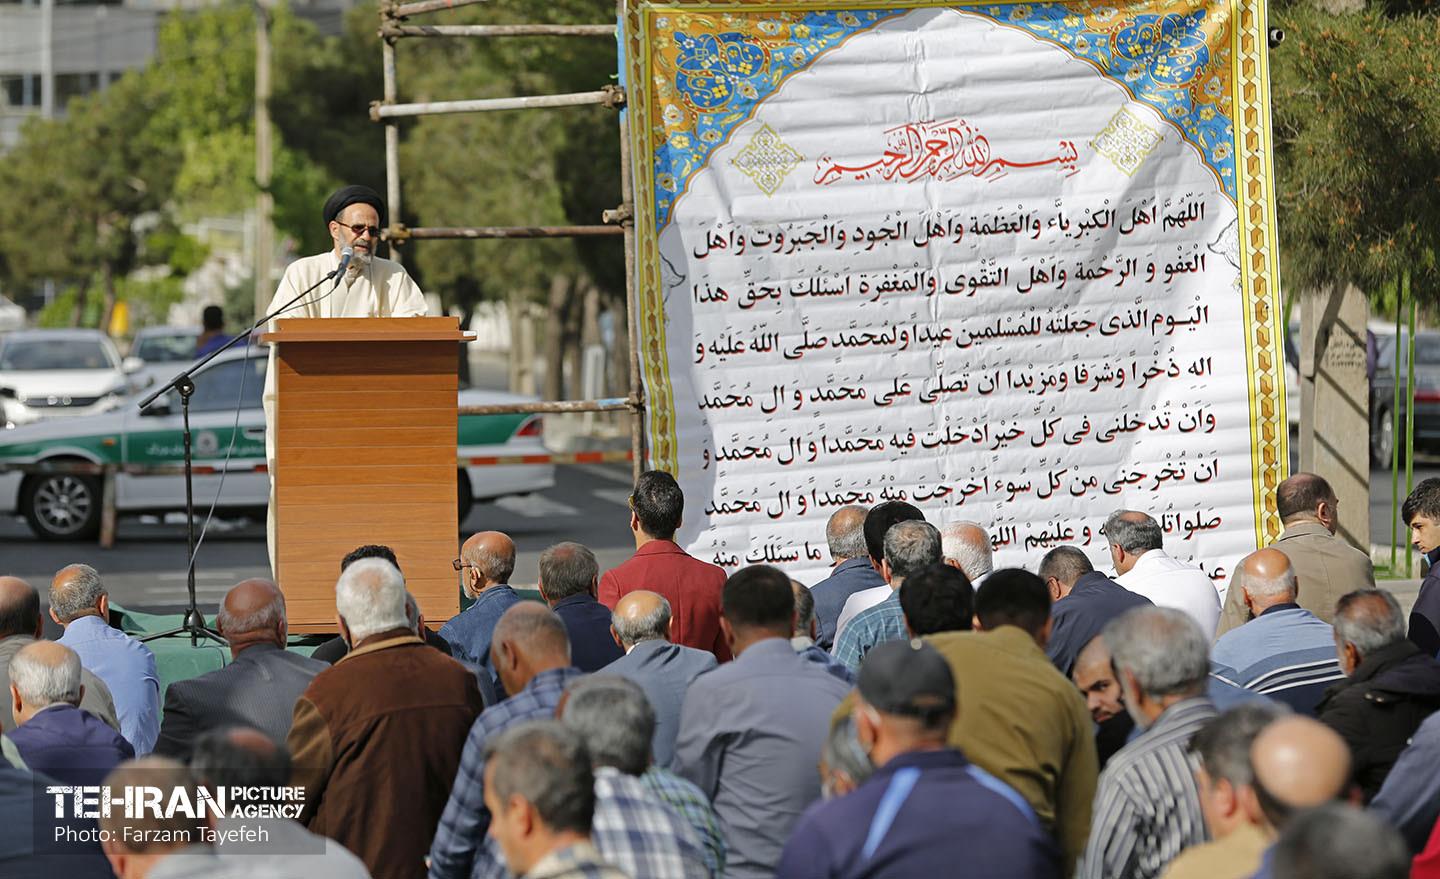 بِسْمِ اللهِ الرَّحْمنِ الرَّحیمِ
اَللّهُمَّ اَهْلَ الْكِبْرِیاَّءِ وَالْعَظَمَةِ وَاَهْلَ الْجُودِ وَالْجَبَرُوتِ وَاَهْلَ
الْعَفْوِ وَ الرَّحْمَةِ وَاَهْلَ التَّقْوى وَالْمَغْفِرَةِ اَسْئَلُكَ بِحَقِّ هذَا
الْیَـومِ الَّذى جَعَلْتَهُ لِلْمُسْلمینَ عیداً ولِمُحَمَّدٍ صَلَّى اللّهُ عَلَیْهِ وَ
الِهِ ذُخْراً وَشَرَفاً وَمَزیْداً اَنْ تُصَلِّىَ عَلى مُحَمَّدٍ وَ الِ مُحَمَّدٍ
وَاَنْ تُدْخِلَنى فى كُلِّ خَیْرٍ اَدْخَلْتَ فیهِ مُحَمَّداً وَ الَ مُحَمَّدٍ وَ
اَنْ تُخْرِجَنى مِنْ كُلِّ سُوءٍ اَخْرَجْتَ مِنْهُ مُحَمَّداً وَ الَ مُحَمَّدٍ
صَلَواتُكَ وَ عَلَیْهِمْ ما سَئَلَكَ مِنْهُ
TEHRAN PICTURE AGENCY
Photo: Farzam Tayefeh